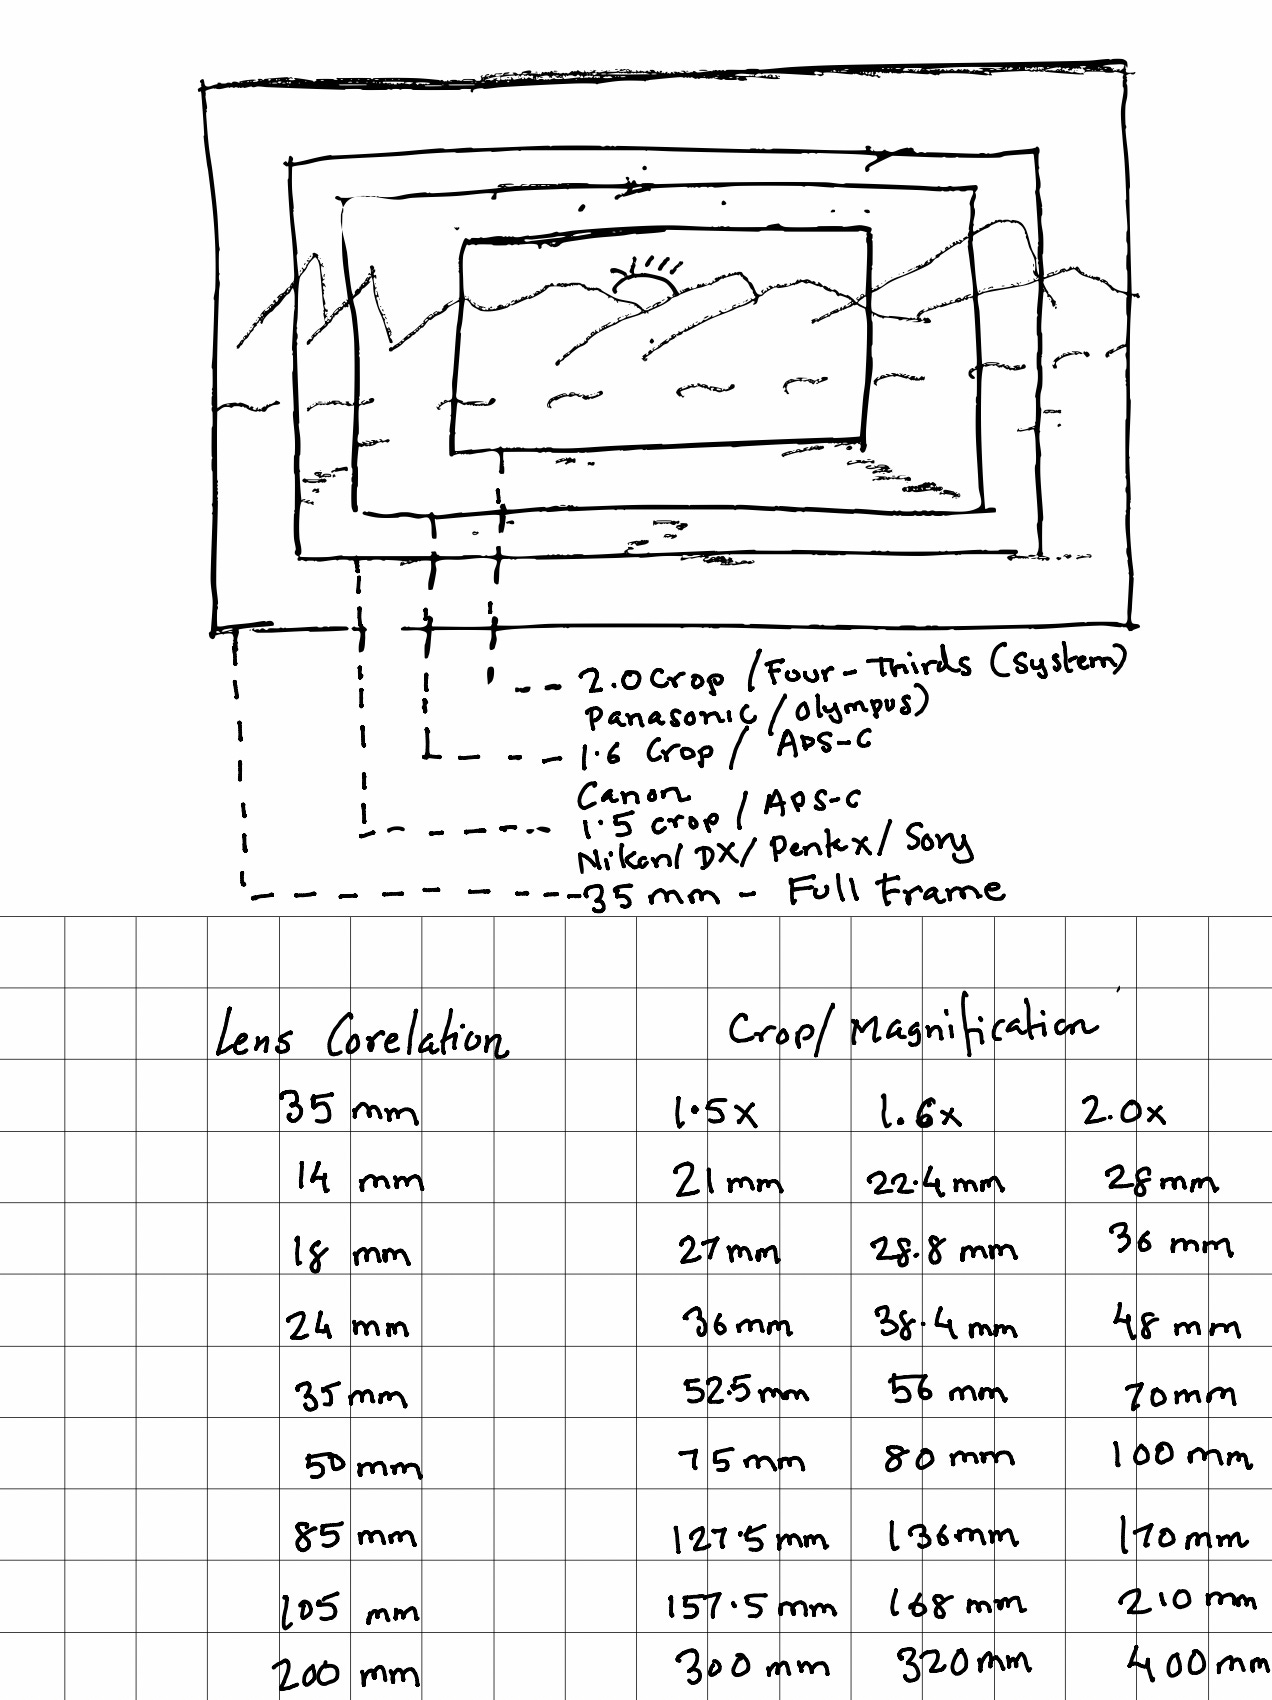 2.0 Crop / Four-Thirds (System)
Panasonic / Olympus)
1.6 Crop / APS-C
Canon
1.5 crop / APS-C
Nikon/ DX/ Pentax/ Sony
35 mm - Full Frame
Lens Corelation Crop/ Magnification
35 mm 1.5x 1.6x 2.0x
14 mm 21 mm 22.4 mm 28 mm
18 mm 27 mm 28.8 mm 36 mm
24 mm 36 mm 38.4 mm 48 mm
35 mm 52.5 mm 56 mm 70 mm
50 mm 75 mm 80 mm 100 mm
85 mm 127.5 mm 136 mm 170 mm
105 mm 157.5 mm 168 mm 210 mm
200 mm 300 mm 320 mm 400 mm